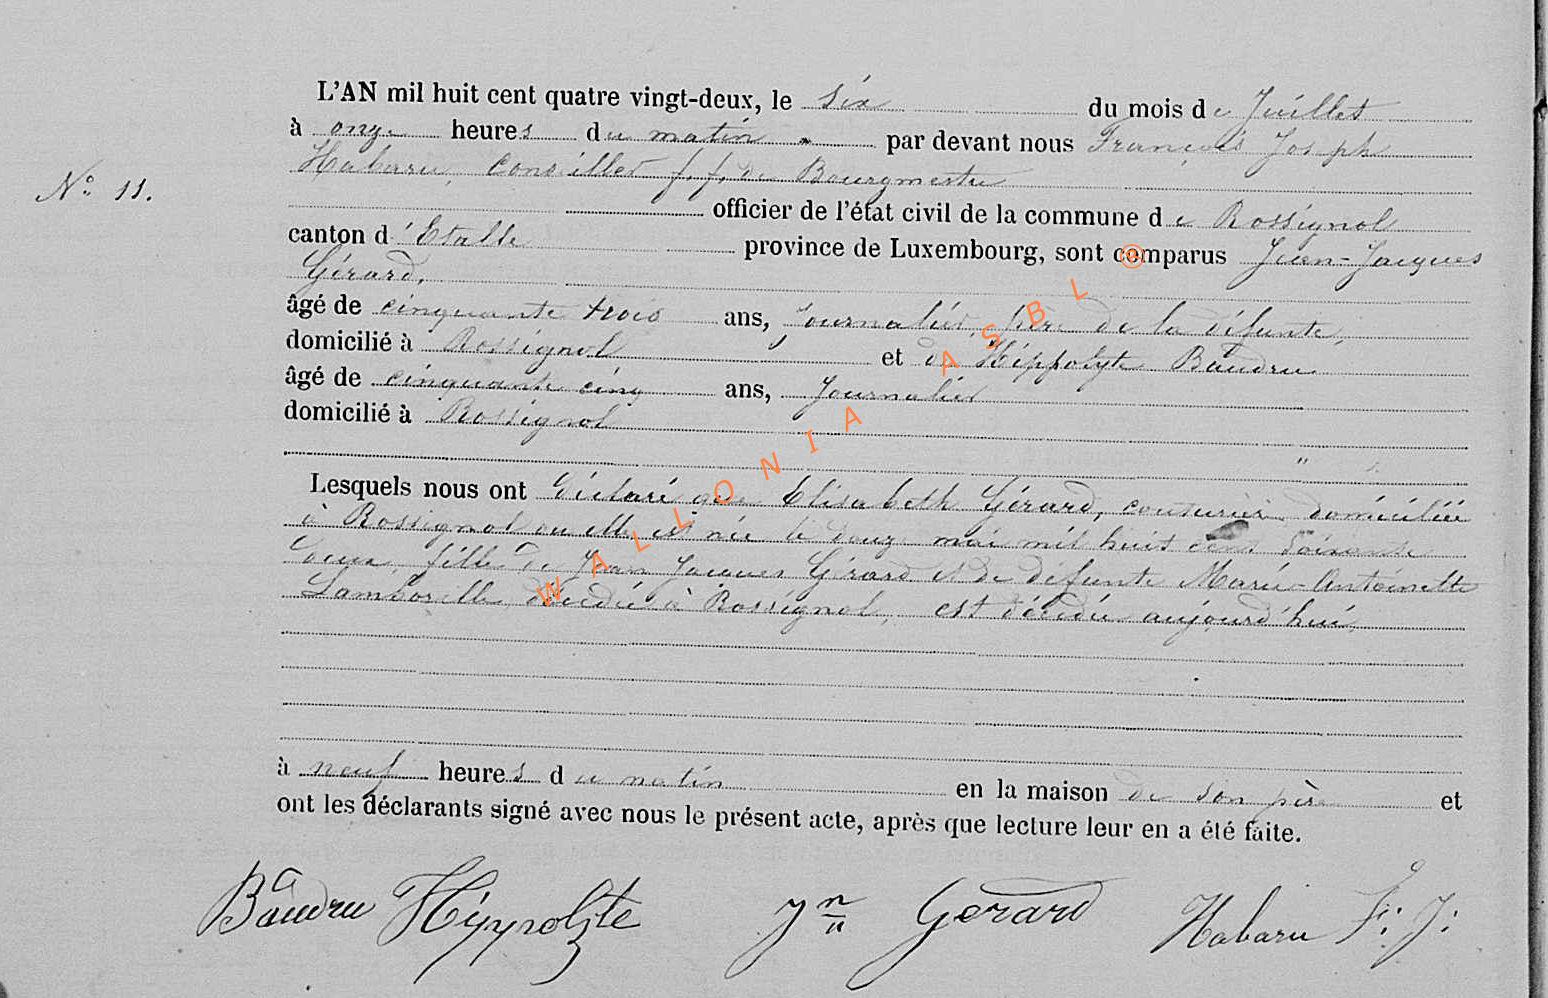 L'AN mil huit cent quatre vingt-deux, le six du mois de Juillet
à onze heures du matin par devant nous François Joseph
Habaru, Conseiller f. f. de Bourgmestre
N° 11.
officier de l'état civil de la commune de Rossignol
canton d'Etalle province de Luxembourg, sont comparus Jean-Jacques
Gérard,
âgé de cinquante trois ans, Journalier, père de la défunte,
domicilié à Rossignol et de Hippolyte Baudru
âgé de cinquante cinq ans, Journalier
domicilié à Rossignol
Lesquels nous ont déclaré que Elisabeth Gérard, couturière domiciliée
à Rossignol ou elle est née le douze mai mil huit cent soixante
deux, fille de Jean Jacques Gérard et de défunte Marie-Antoinette
Lamborelle décédée à Rossignol, est décédée aujourd'hui
à neuf heures du matin en la maison de son père et
ont les déclarants signé avec nous le présent acte, après que lecture leur en a été faite.
Baudru Hippolite Jn Gerard Habaru F: J:
WALLONIA ASBL ©